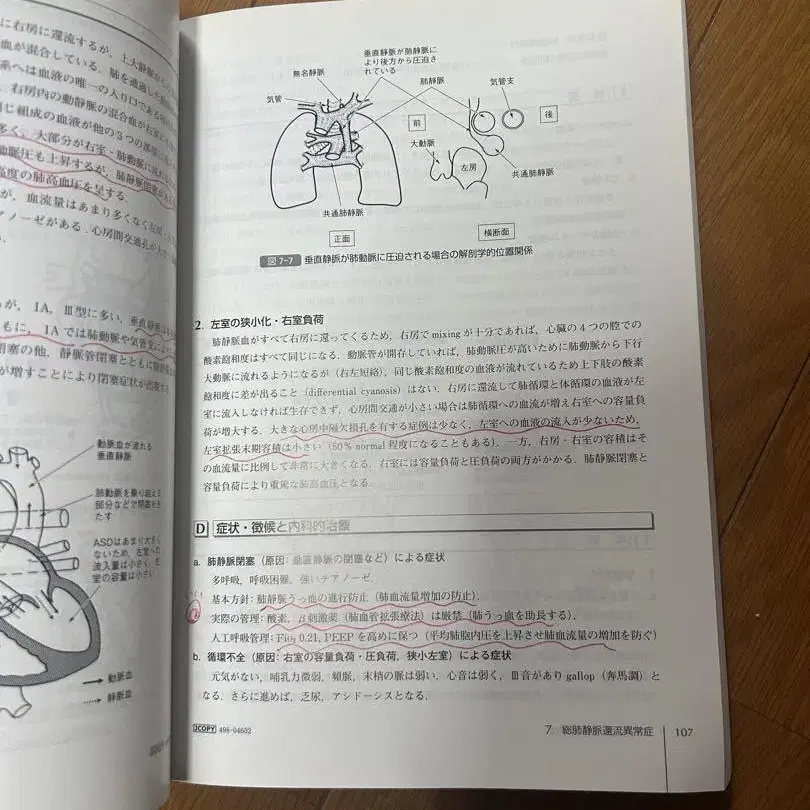 に右房に還流するが,上大静脈から
血が混合している.肺を通過した
系へは血液の唯一の入り口である
右房内の動静脈の混合血が右室
同じ組成の血液が他の3つの部屋に
多く,大部分が右室・肺動脈に流れ
動脈圧も上昇するが,肺静脈閉塞が
高度の肺高血圧を呈する.
が,血流量はあまり多くなく左房
アノーゼがある.心房間交通孔が大
が,IA,Ⅲ型に多い.垂直静脈
もに,IAでは肺動脈や気管支に
閉塞の他,静脈管閉塞とともに
が増すことにより閉塞症状が出現する
動脈血が流れる
垂直静脈
肺動脈を乗り越える
部分などで閉塞をき
たす
ASDはあまり大きく
ないため,左室への
流入量は小さく,左
室の容量は小さい
動脈血
静脈血
垂直静脈が肺静脈に
より後方から圧迫さ
れている
無名静脈
気管
肺静脈
気管支
前
後
大動脈
左房
共通肺静脈
共通肺静脈
正面
横断面
図 7-7 垂直静脈が肺動脈に圧迫される場合の解剖学的位置関係
2. 左室の狭小化・右室負荷
肺静脈血がすべて右房に還ってくるため,右房でmixingが十分であれば,心臓の4つの腔での
酸素飽和度はすべて同じになる.動脈管が開存していれば,肺動脈圧が高いために肺動脈から下行
大動脈に流れるようになるが(右左短絡),同じ酸素飽和度の血液が流れているため上下肢の酸素
飽和度に差が出ること(differential cyanosis)はない.右房に還流して肺循環と体循環の血液が左
室に流入しなければ生存できず,心房間交通が小さい場合は肺循環への血流が増え右室への容量負
荷が増大する.大きな心房中隔欠損孔を有する症例は少なく,左室への血液の流入が少ないため,
左室拡張末期容積は小さい(50% normal 程度になることもある).一方,右房・右室の容積はそ
の血流量に比例して非常に大きくなる.右室には容量負荷と圧負荷の両方がかかる.肺静脈閉塞と
容量負荷により重篤な肺高血圧となる.
D 症状・徴候と内科的治療
a. 肺静脈閉塞(原因:垂直静脈の閉塞など)による症状
多呼吸,呼吸困難,強いチアノーゼ
基本方針:肺静脈うっ血の進行防止(肺血流量増加の防止).
実際の管理:酸素,β刺激薬(肺血管拡張療法)は厳禁(肺うっ血を助長する).
人工呼吸管理:FIO2 0.21, PEEPを高めに保つ(平均肺胞内圧を上昇させ肺血流量の増加を防ぐ)
b. 循環不全(原因:右室の容量負荷・圧負荷,狭小左室)による症状
元気がない,哺乳力微弱,頻脈,末梢の脈は弱い.心音は弱く,Ⅲ音がありgallop(奔馬調)と
なる.さらに進めば,乏尿,アシドーシスとなる.
JCOPY 498-04602
7. 総肺静脈還流異常症 107